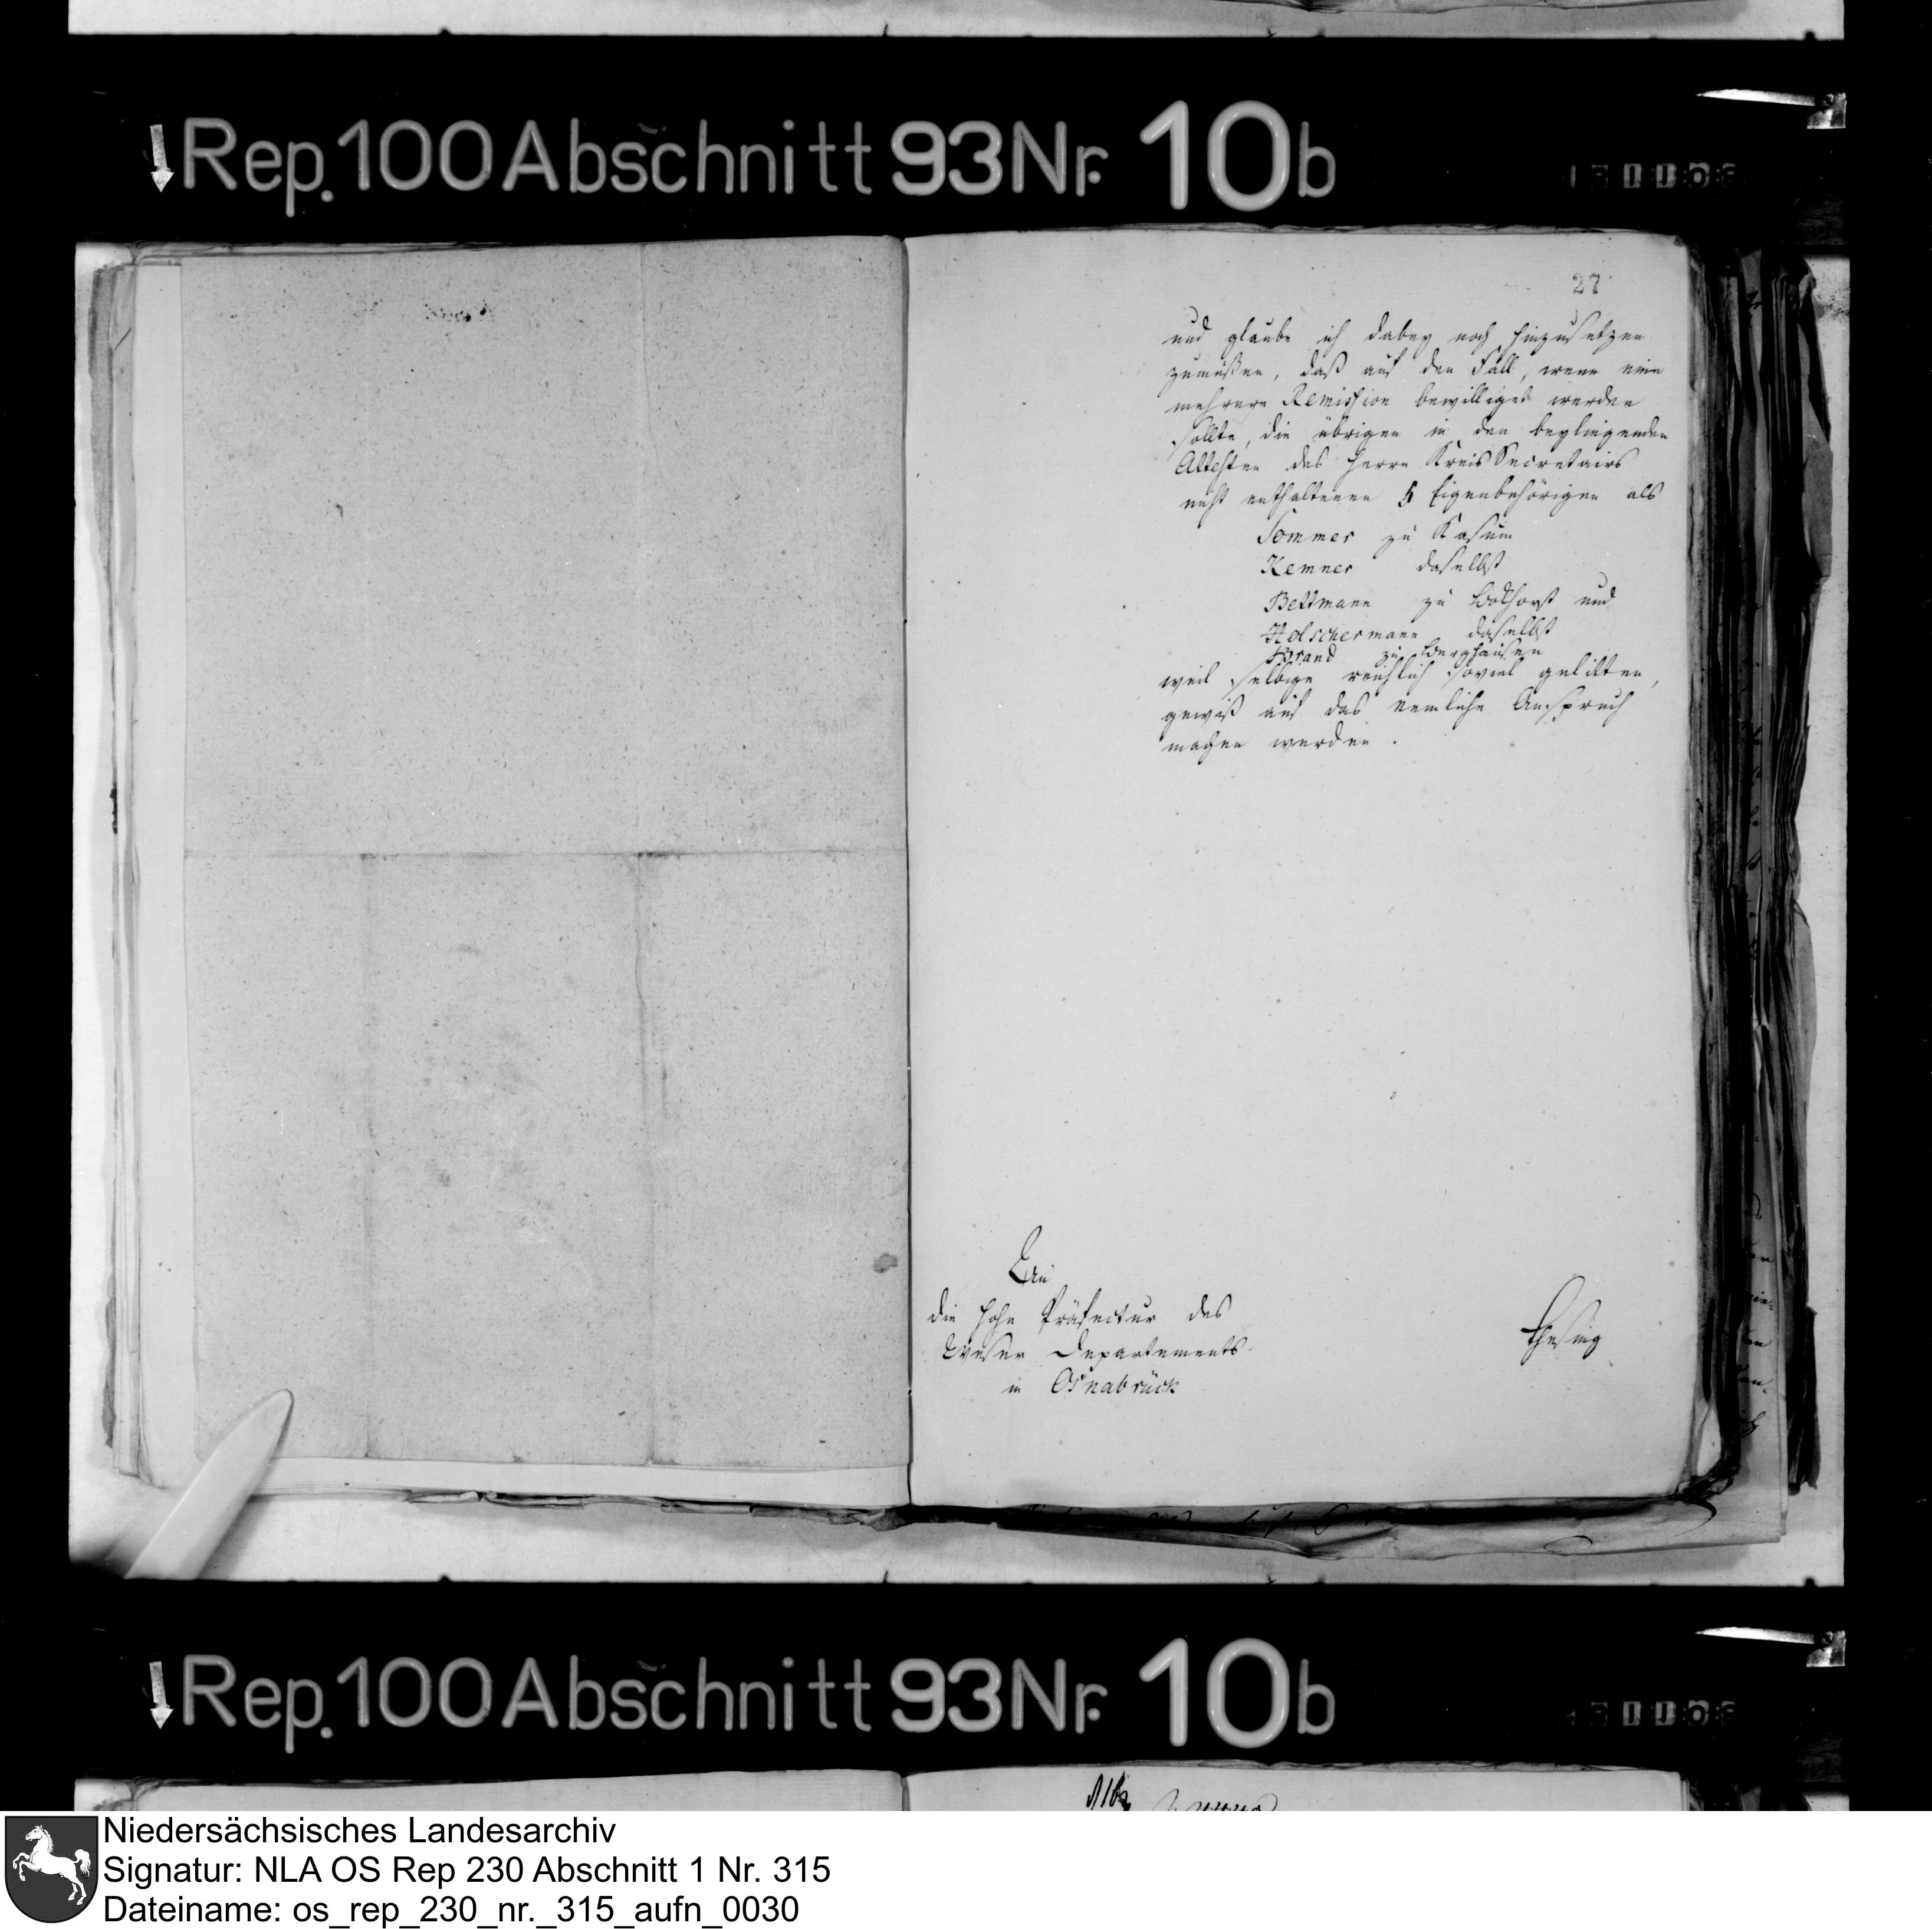 Rep. 100 Abschnitt 93 Nr. 10b
27
und glaube ich dabey noch hinzusetzen
zumüßen, daß auf den Fall, wenn eine
mehrere Remission bewilliget werden
sollte, die übrigen in den beyliegenden
Attesten des Herrn KreisSecretairs
nicht enthaltenen 5 Eigenbehörigen als
Sommer zu Kasum
Kemner daselbst
Bettmann zu Bokhorst und
Holschermann daselbst
Brand zu Berghausen
weil selbige reichlich soviel gelitten,
gewiß auf das nemliche Anspruch
machen werden.
An
die hohe Präfectur des
Weser Departements
in Osnabrück
Thesing
Rep. 100 Abschnitt 93 Nr. 10b
Niedersächsisches Landesarchiv
Signatur: NLA OS Rep 230 Abschnitt 1 Nr. 315
Dateiname: os_rep_230_nr._315_aufn_0030